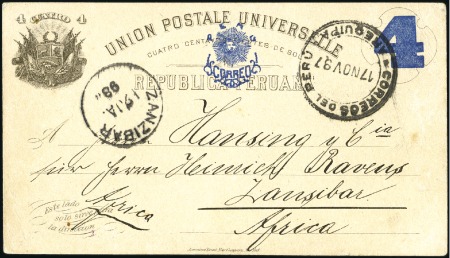 4 CUATRO 4
UNION POSTALE UNIVERSELLE
CUATRO CENT
DE SOL
REPUBLICA PERUANA
CORREOS
4
CORREOS DEL PERU
AREQUIPA
17 NOV 97
ZANZIBAR
JA
98
A Hansing y Cia
für Herrn Heinrich Ravens
Zansibar
Africa
Africa
Este lado
solo sirve para
la direccion